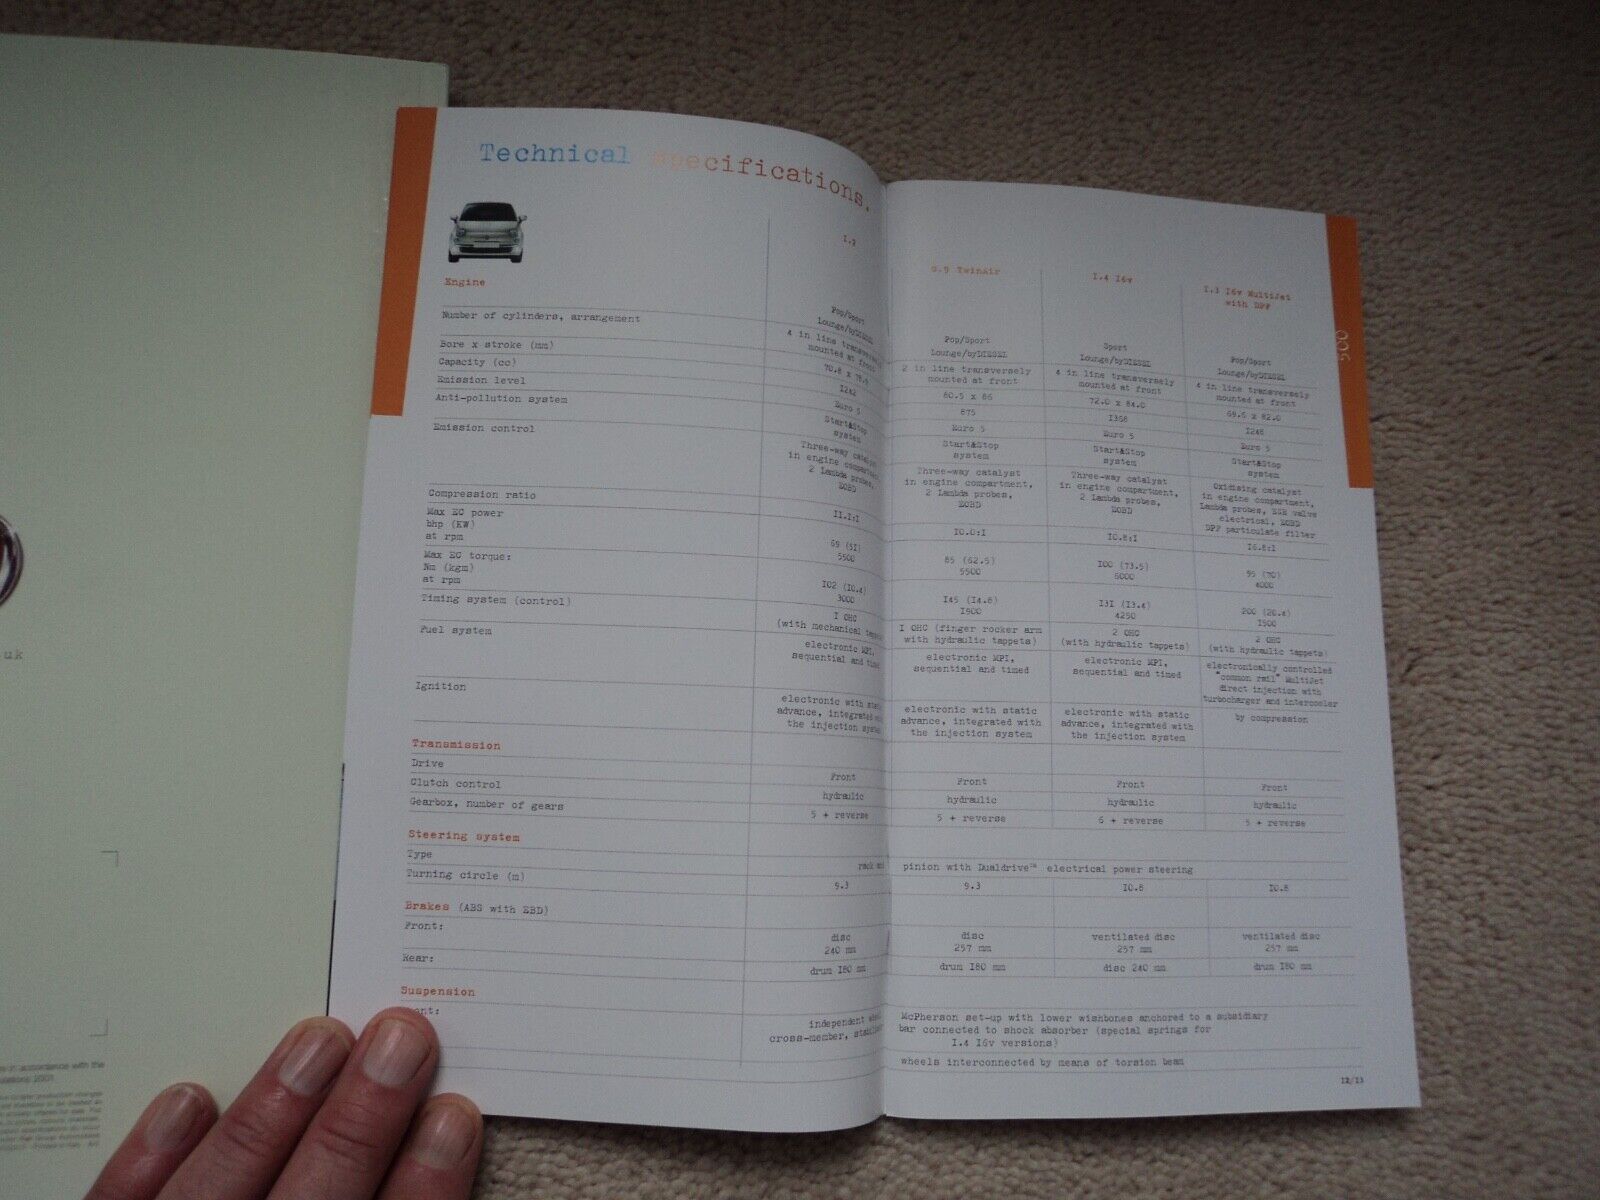 uk
in accordance with the
Technical specifications.
1.2
0.9 TwinAir
1.4 16v
1.3 16v MultiJet
with DPF
500
Engine
Pop/Sport
Lounge/byDIESEL
Pop/Sport
Lounge/byDIESEL
Sport
Lounge/byDIESEL
Pop/Sport
Lounge/byDIESEL
Number of cylinders, arrangement
4 in line transversely
mounted at front
2 in line transversely
mounted at front
4 in line transversely
mounted at front
4 in line transversely
mounted at front
Bore x stroke (mm)
80.5 x 86
72.0 x 84.0
69.6 x 82.0
Capacity (cc)
1242
875
1368
1248
Emission level
Euro 5
Euro 5
Euro 5
Euro 5
Anti-pollution system
Start&Stop
system
Start&Stop
system
Start&Stop
system
Start&Stop
system
Emission control
Three-way catalyst
in engine compartment,
2 Lambda probes,
EOBD
Three-way catalyst
in engine compartment,
2 Lambda probes,
EOBD
Three-way catalyst
in engine compartment,
2 Lambda probes,
EOBD
Oxidising catalyst
in engine compartment,
Lambda probes, EGR valve
electrical, EOBD
DPF particulate filter
Compression ratio
11.1:1
10.0:1
10.8:1
16.8:1
Max EC power
bhp (KW)
at rpm
69 (51)
5500
85 (62.5)
5500
100 (73.5)
6000
95 (70)
4000
Max EC torque:
Nm (kgm)
at rpm
102 (10.4)
3000
145 (14.8)
1900
131 (13.4)
4250
200 (20.4)
1500
Timing system (control)
1 OHC
(with mechanical
1 OHC (finger rocker arm
with hydraulic tappets)
2 OHC
(with hydraulic tappets)
2 OHC
(with hydraulic tappets)
Fuel system
electronic MPI,
sequential and timed
electronic MPI,
sequential and timed
electronic MPI,
sequential and timed
electronically controlled
"common rail" MultiJet
direct injection with
turbocharger and intercooler
Ignition
electronic with static
advance, integrated with
the injection system
electronic with static
advance, integrated with
the injection system
electronic with static
advance, integrated with
the injection system
by compression
Transmission
Drive
Front
Front
Front
Front
Clutch control
hydraulic
hydraulic
hydraulic
hydraulic
Gearbox, number of gears
5 + reverse
5 + reverse
6 + reverse
5 + reverse
Steering system
Type
rack and pinion with Dualdrive™ electrical power steering
Turning circle (m)
9.3
9.3
10.8
10.8
Brakes (ABS with EBD)
Front:
disc
240 mm
disc
257 mm
ventilated disc
257 mm
ventilated disc
257 mm
Rear:
drum 180 mm
drum 180 mm
disc 240 mm
drum 180 mm
Suspension
independent
cross-member,
McPherson set-up with lower wishbones anchored to a subsidiary
bar connected to shock absorber (special springs for
1.4 16v versions)
wheels interconnected by means of torsion beam
12/13